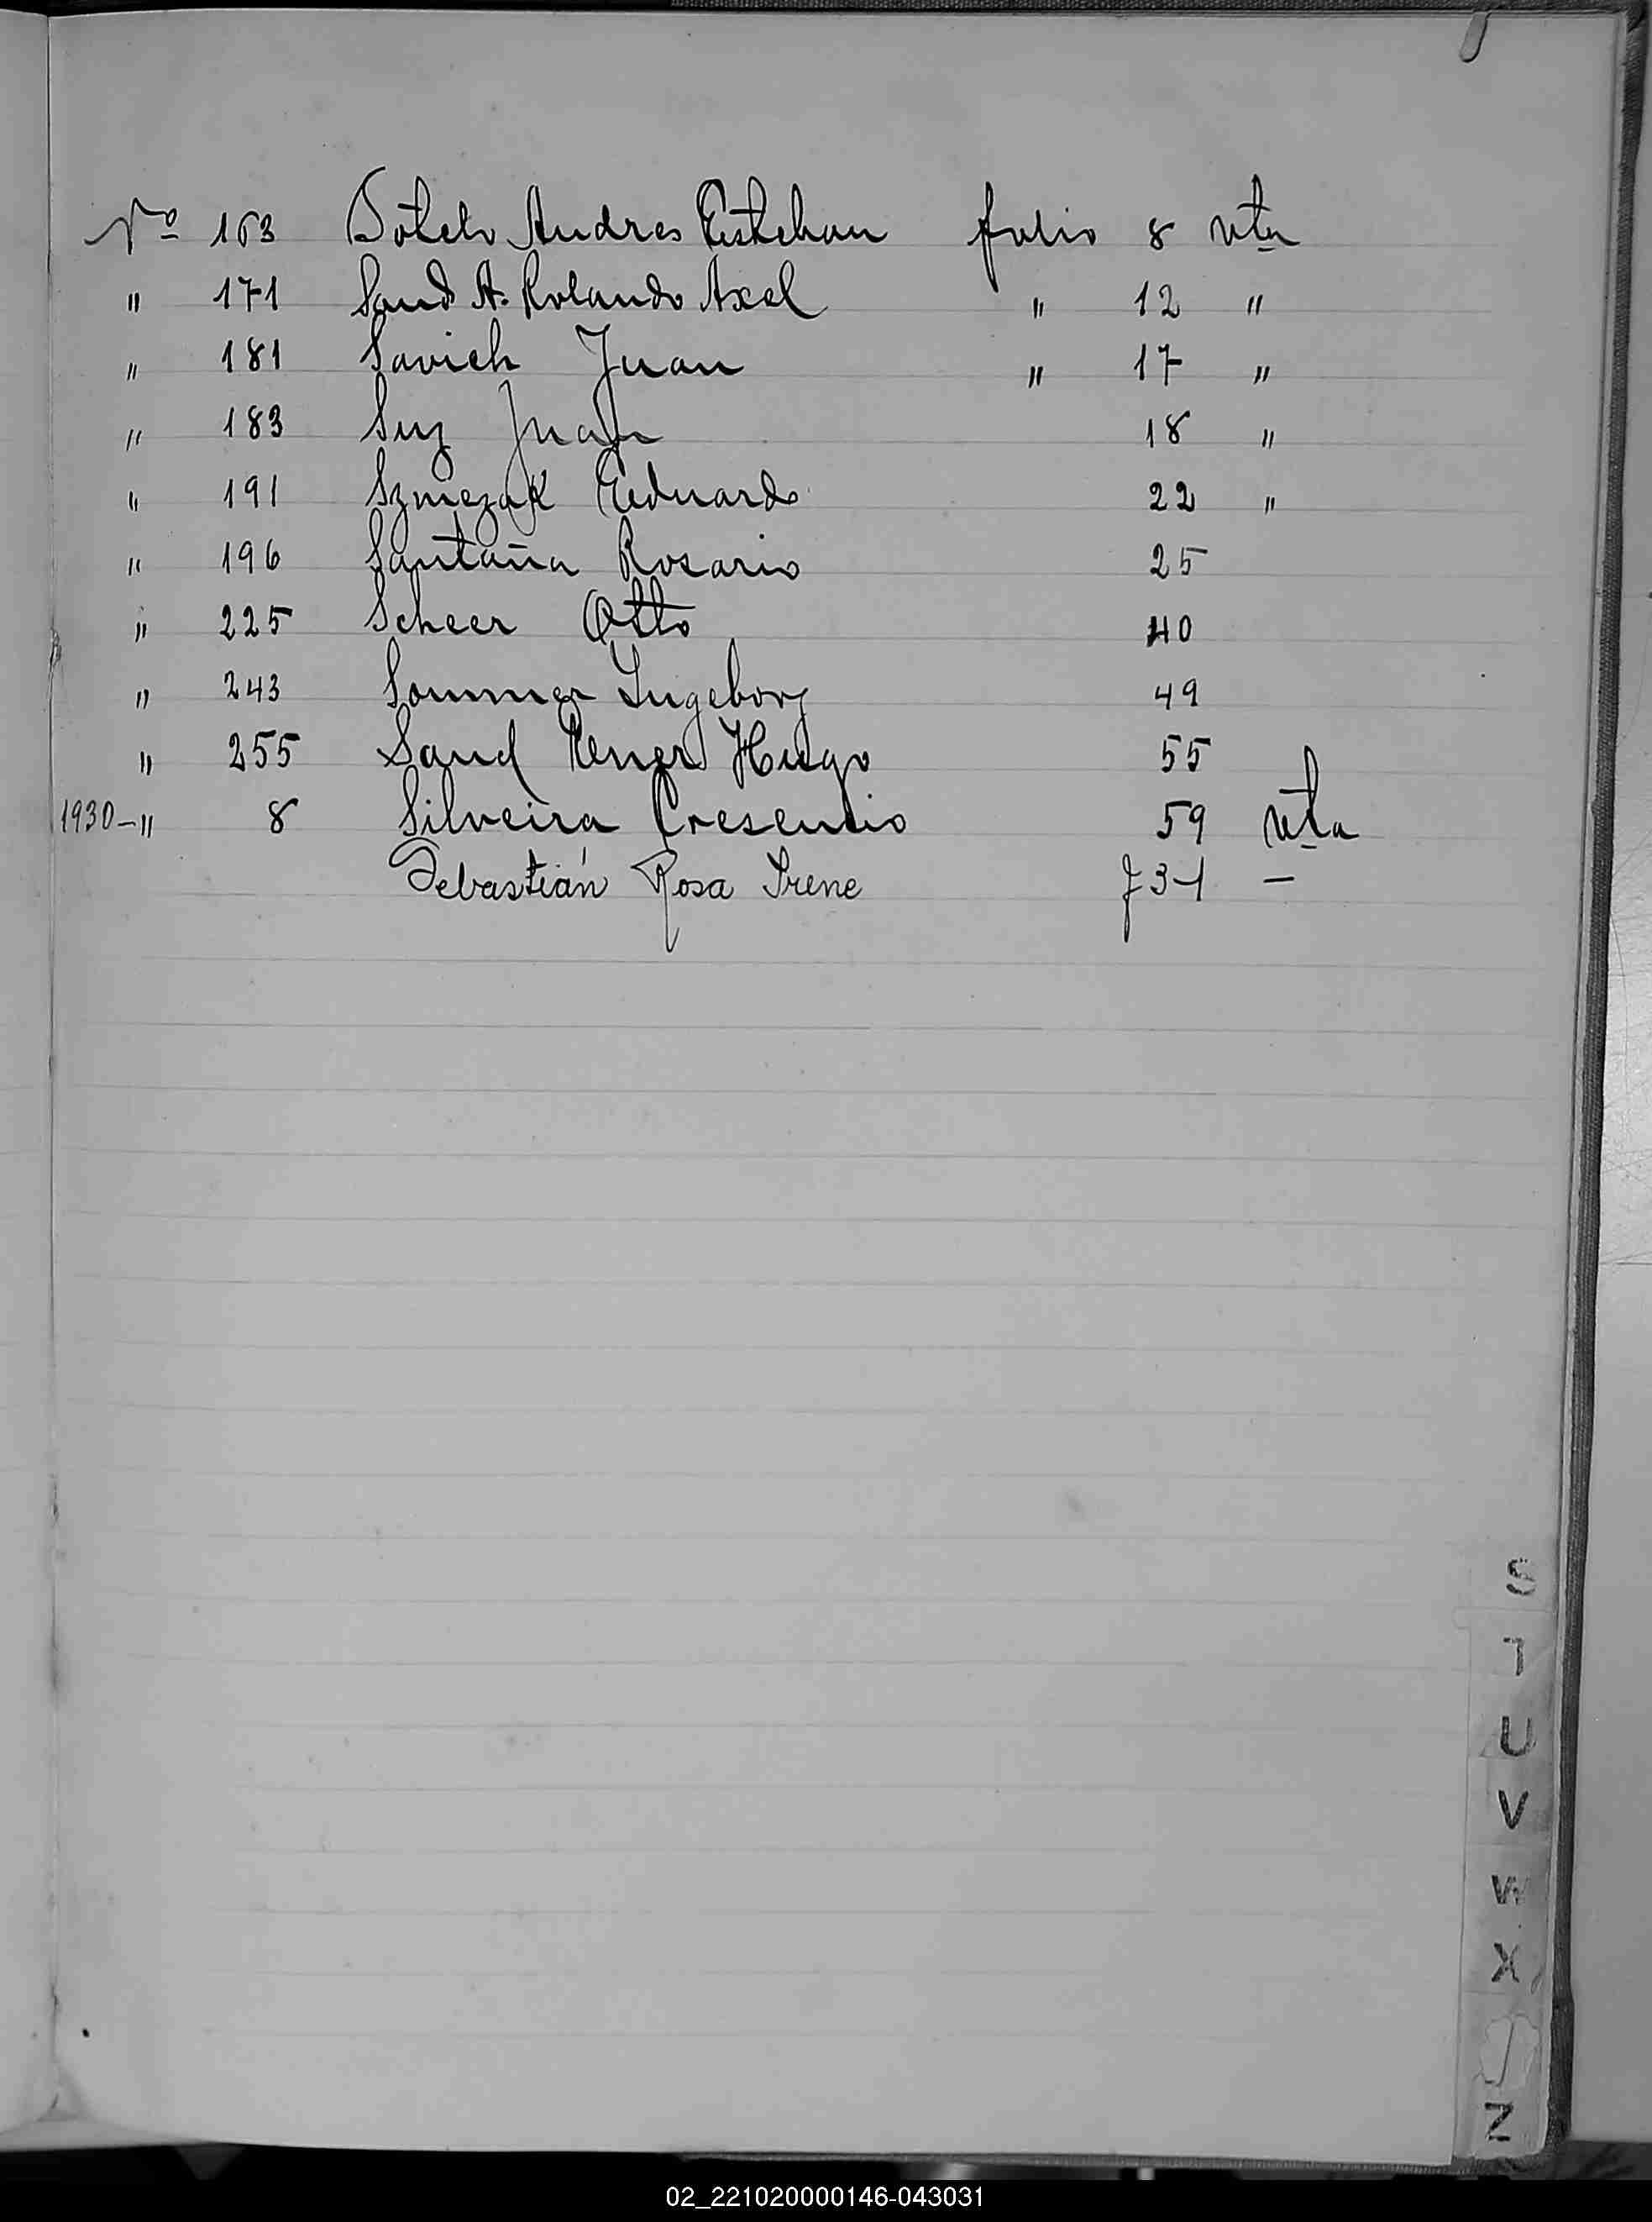 Nº 163 Sotelo Andres Esteban folio 8 vta
" 171 Sand A. Rolando Axel " 12 "
" 181 Savich Juan " 17 "
" 183 Suz Juan 18 "
" 191 Szmezak Eduardo 22 "
" 196 Santaña Rosario 25
" 225 Scheer Otto 40
" 243 Sommer Ingeborg 49
" 255 Sand Hugo 55
1930-" 8 Silveira Cresencio 59 vta
Sebastián Rosa Irene f 31 -
S
T
U
V
W
X
Z
02_221020000146-043031